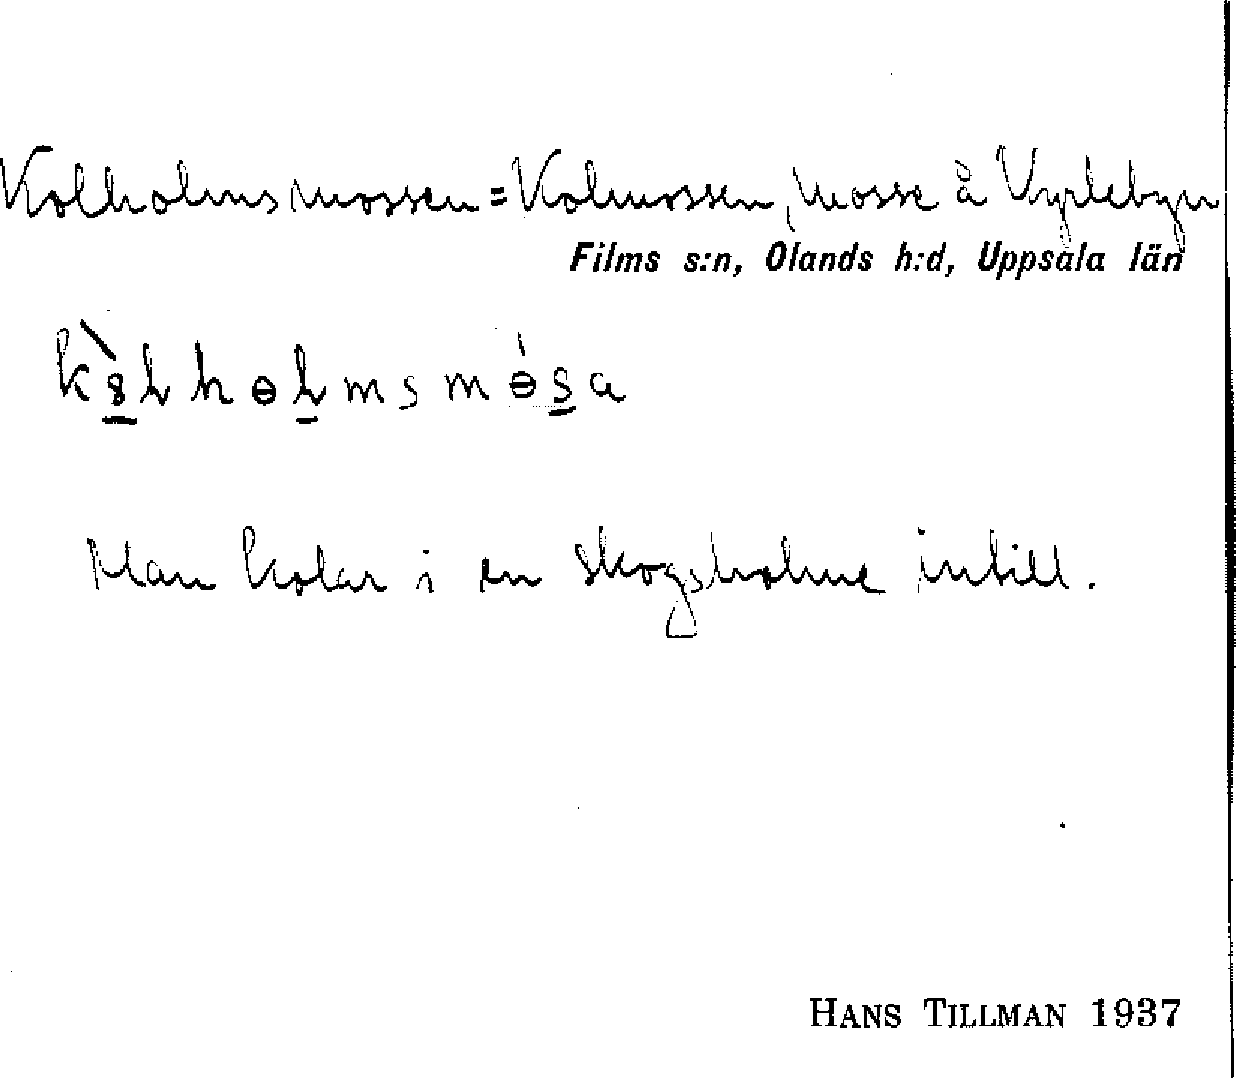 Kolholmsmossen = Kolmossen, mosse å Vyrlebyn
Films s:n, Olands h:d, Uppsala län
Man kolar i en skogsholme intill.
HANS TILLMAN 1937